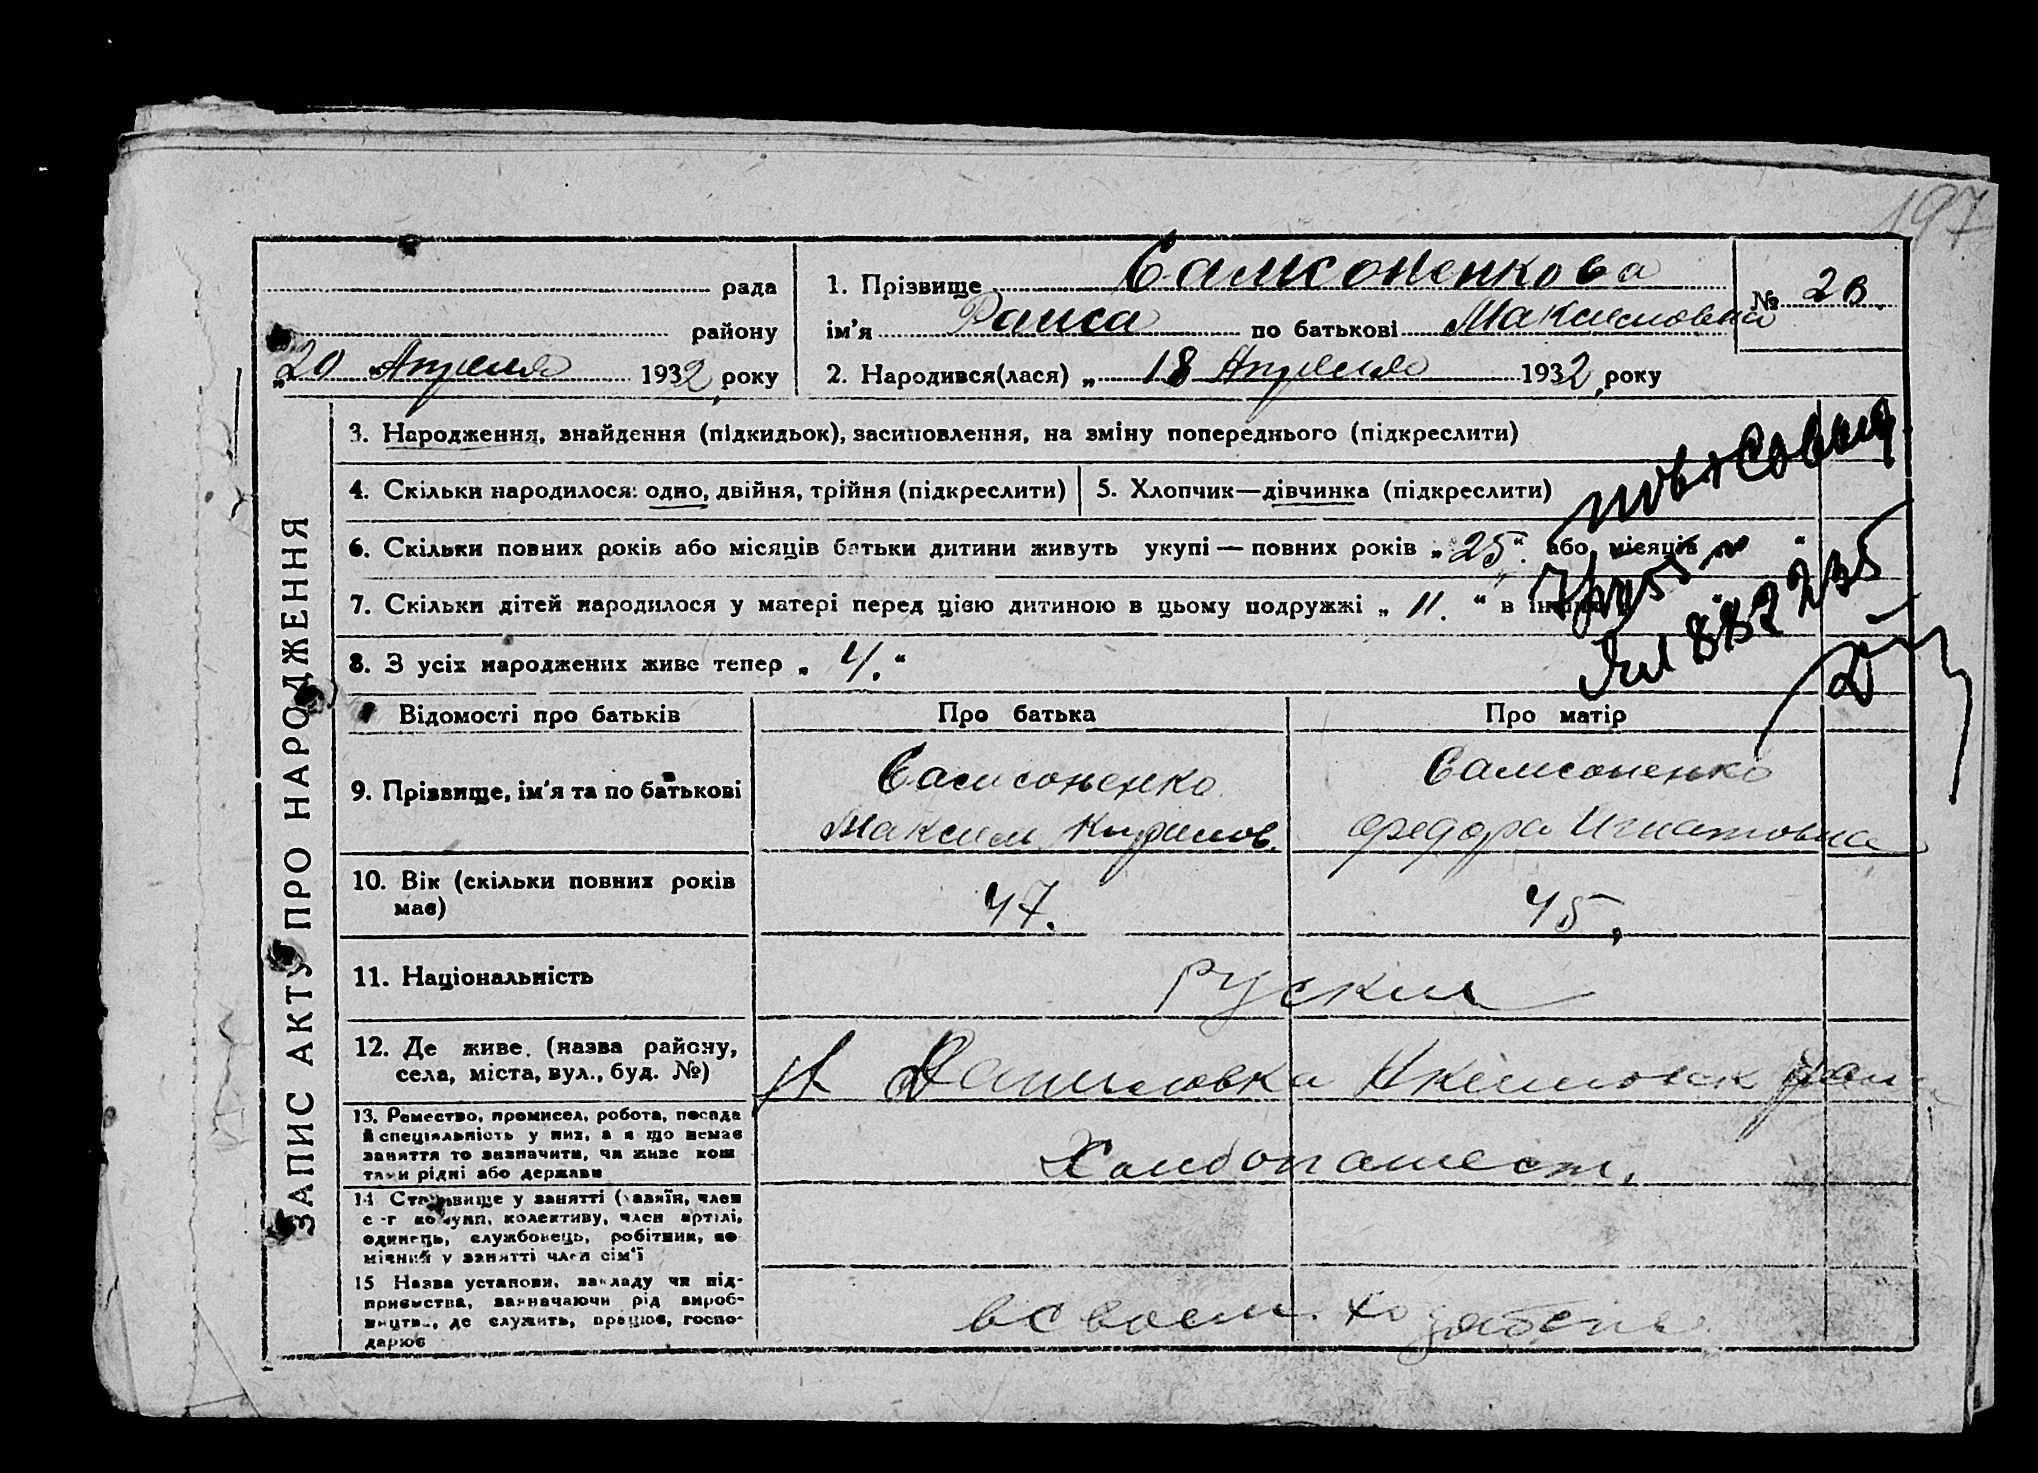 197
рада
1. Прізвище Самсоненкова
№ 28.
району
ім'я Раиса по батькові Максимовна
„20 Апреля 1932, року
2. Народився(лася) „ 18 Апреля 1932, року
ЗАПИС АКТУ ПРО НАРОДЖЕННЯ
3. Народження, знайдення (підкидьок), засиновлення, на зміну попереднього (підкреслити)
4. Скільки народилося: одно, двійня, трійня (підкреслити)
5. Хлопчик—дівчинка (підкреслити)
6. Скільки повних років або місяців батьки дитини живуть укупі — повних років „ 25 “. або місяців „ “
7. Скільки дітей народилося у матері перед цією дитиною в цьому подружжі „ 11. “ в
8. З усіх народжених живе тепер „ 4. “
Відомості про батьків
Про батька
Про матір
9. Прізвище, ім'я та по батькові
Самсоненко
Максим Кирилов.
Самсоненко
Федора Игнатовна
10. Вік (скільки повних років має)
47.
45,
11. Національність
Руские
12. Де живе. (назва району,
села, міста, вул., буд. №)
Даниловка Акимовск
13. Ремество, промисел, робота, посада
й спеціяльність у них, а я що немає
заняття то зазначити, чи живе кош
тами рідні або держави
Хлибопашест.
14 Становище у занятті (хазяїн, член
с-г комуни, колективу, член артілі,
одинець, службовець, робітник, по
мічний у занятті член сім'ї
15 Назва установи, закладу чи під-
приємства, зазначаючи рід вироб-
ництва, де служить, працює, госпо-
дарює
в своем.